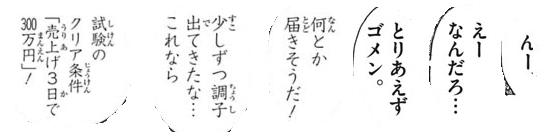 んー
えー
なんだろ…
とりあえず
ゴメン。
何とか
届きそうだ！
少しずつ調子
出てきたな…
これなら
試験の
クリア条件
「売上げ3日で
300万円」！